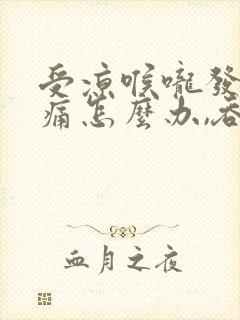 受凉喉嚨發
痛怎麼办,吞
血月之夜